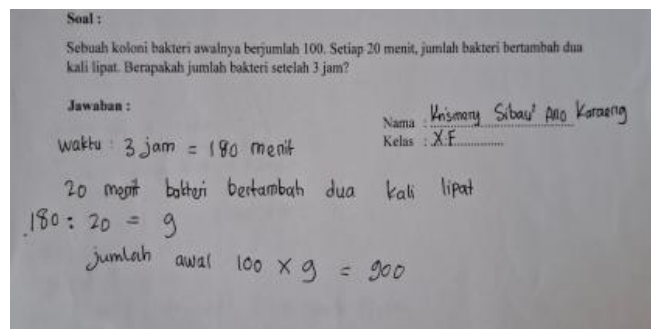 Soal :
Sebuah koloni bakteri awalnya berjumlah 100. Setiap 20 menit, jumlah bakteri bertambah dua
kali lipat. Berapakah jumlah bakteri setelah 3 jam?
Jawaban :
Nama : Krismany Sibau' Ano Karaeng
Kelas : X.F
Waktu : 3 jam = 180 menit
20 menit bakteri bertambah dua kali lipat
180 : 20 = 9
jumlah awal 100 × 9 = 900